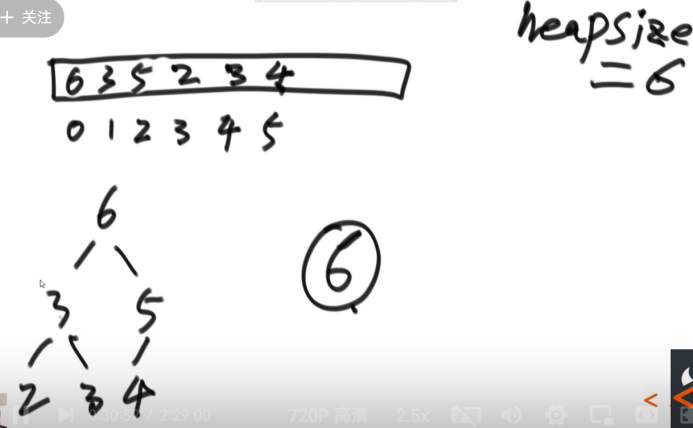 + 关注
heapsize
= 6
6 3 5 2 3 4
0 1 2 3 4 5
6
3 5
6
2 3 4
/ 2:29:00 720P 高清 2.5x